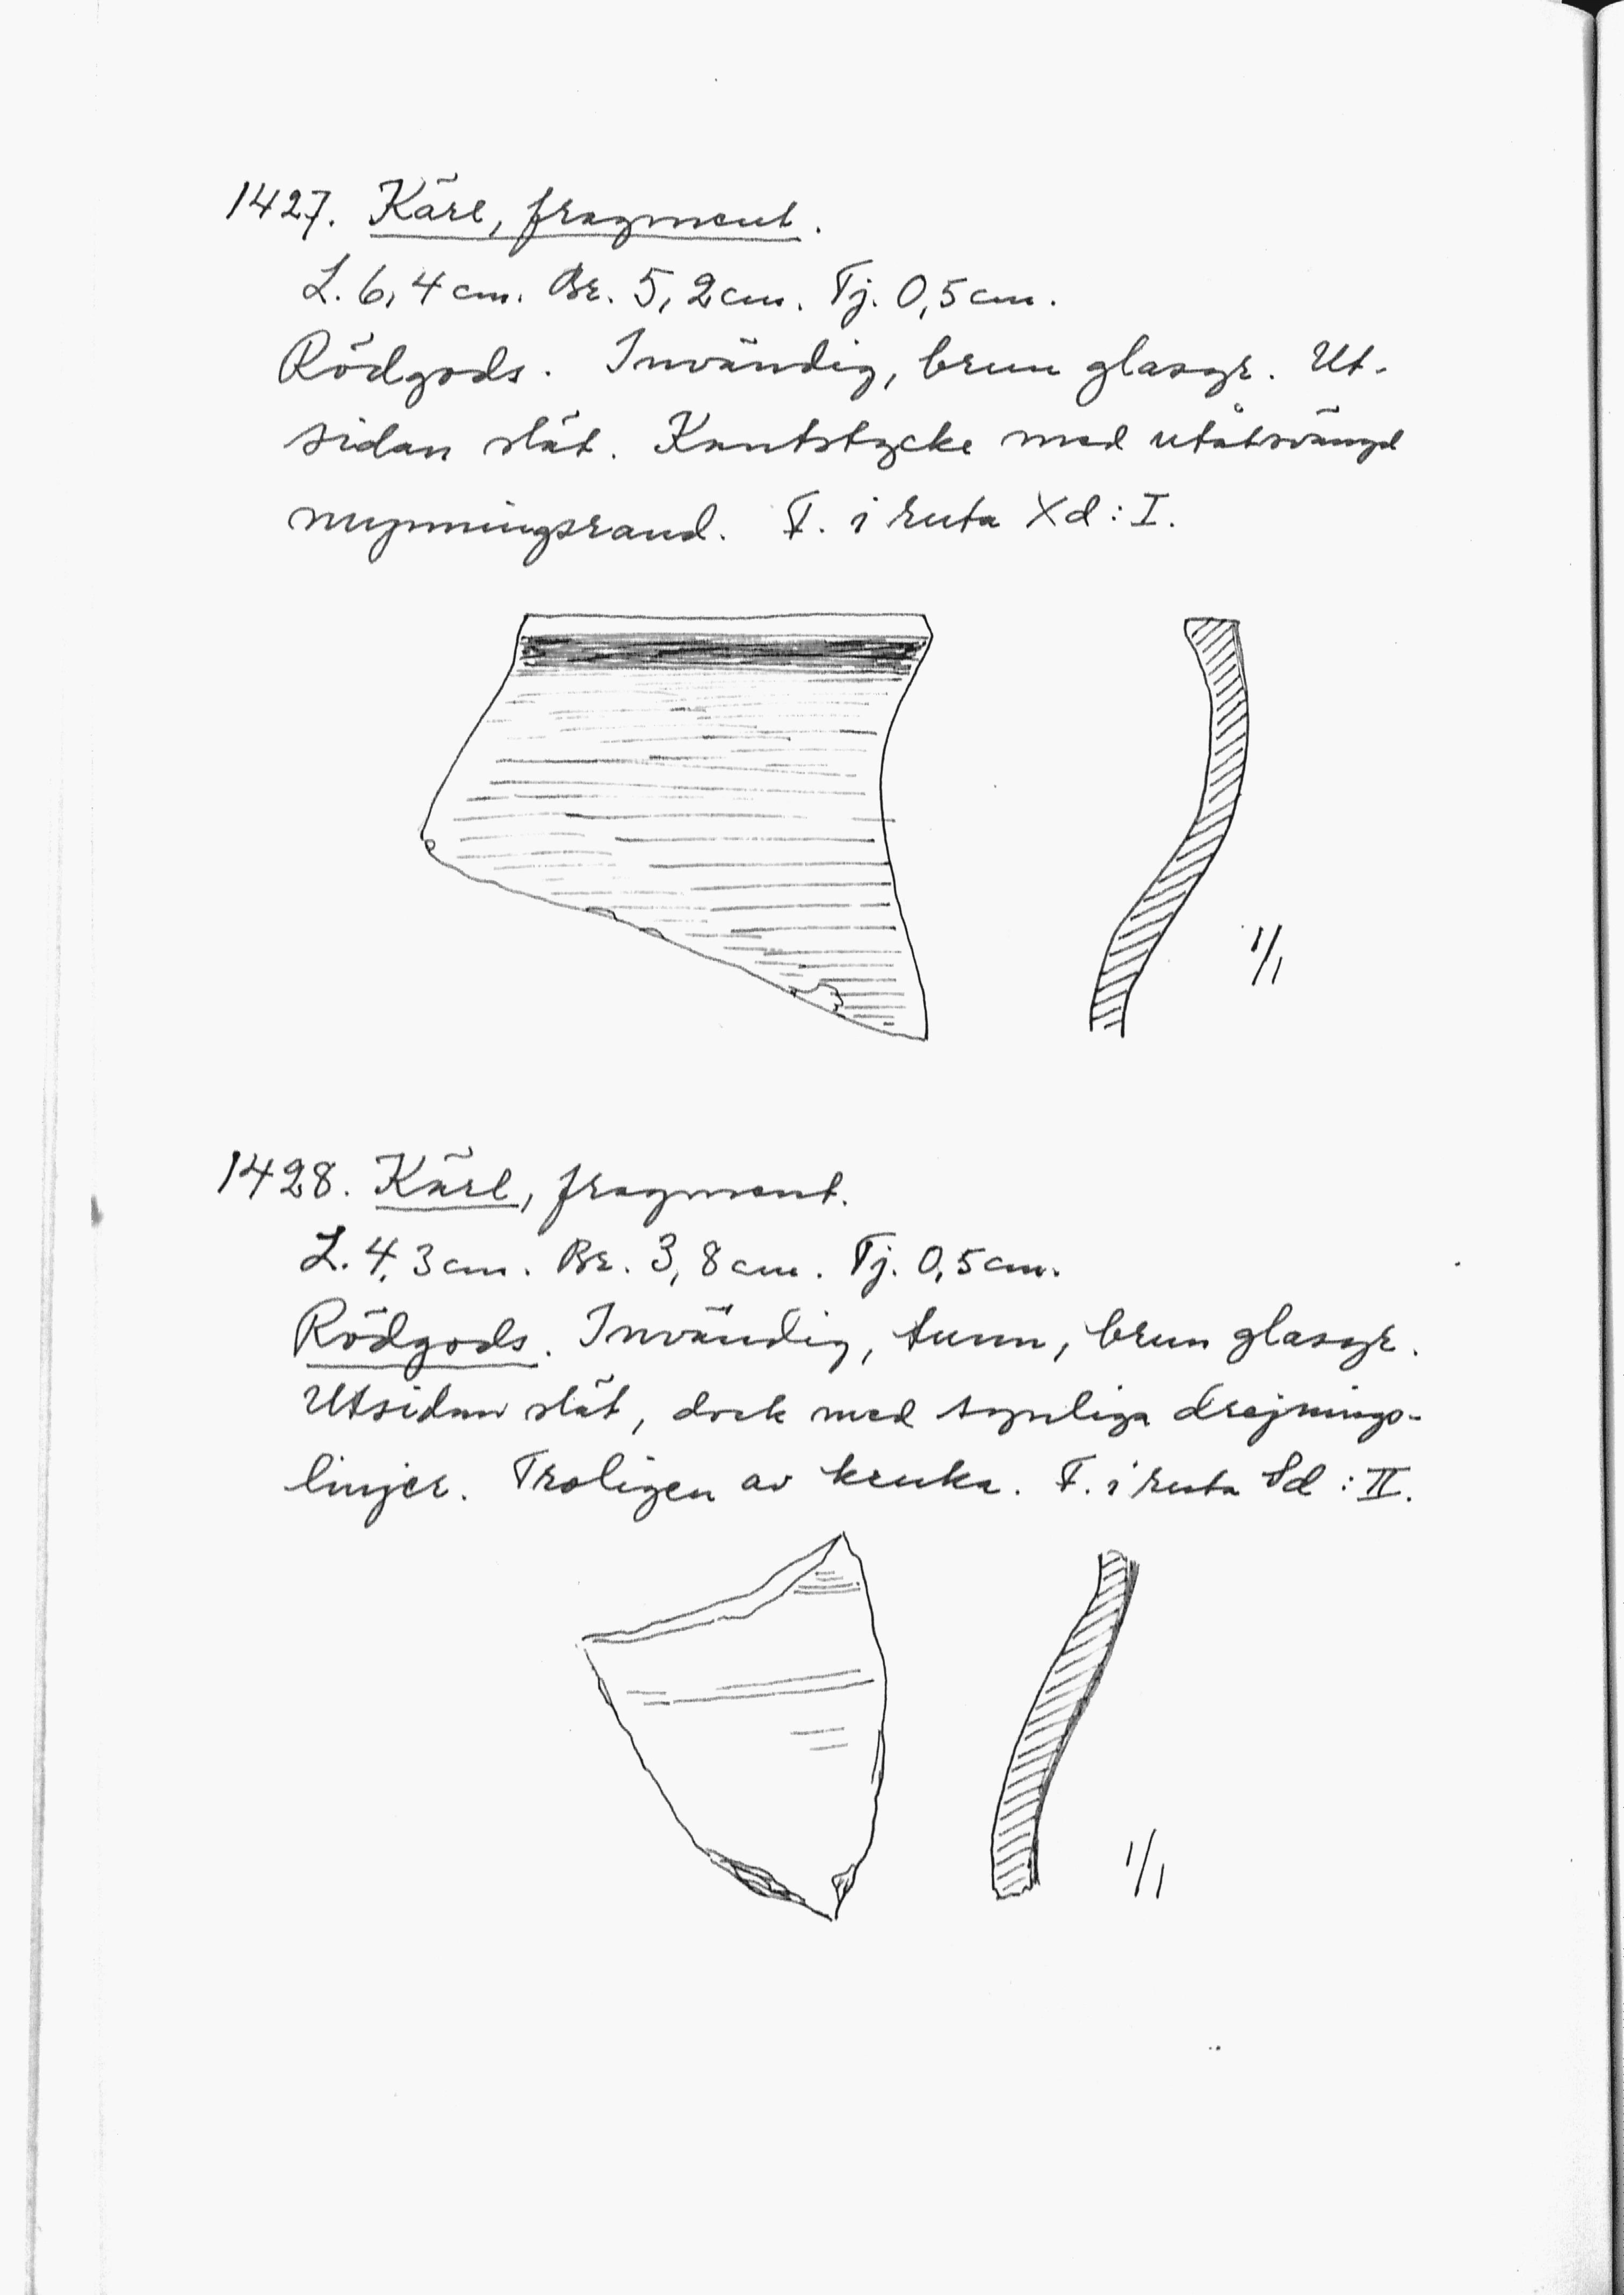 1427. Kärl, fragment.
L. 6,4 cm. Br. 5,2 cm. Tj. 0,5 cm.
Rödgods. Invändig, brun glasyr. Ut-
sidan slät. Kantstycke med utåtsvängd
mynningsrand. F. i ruta Xd : I.
1/1
1428. Kärl, fragment.
L. 4,3 cm. Br. 3,8 cm. Tj. 0,5 cm.
Rödgods. Invändig, tunn, brun glasyr.
Utsidan slät, dock med synliga drejnings-
linjer. Troligen av kruka. F. i ruta : II.
1/1